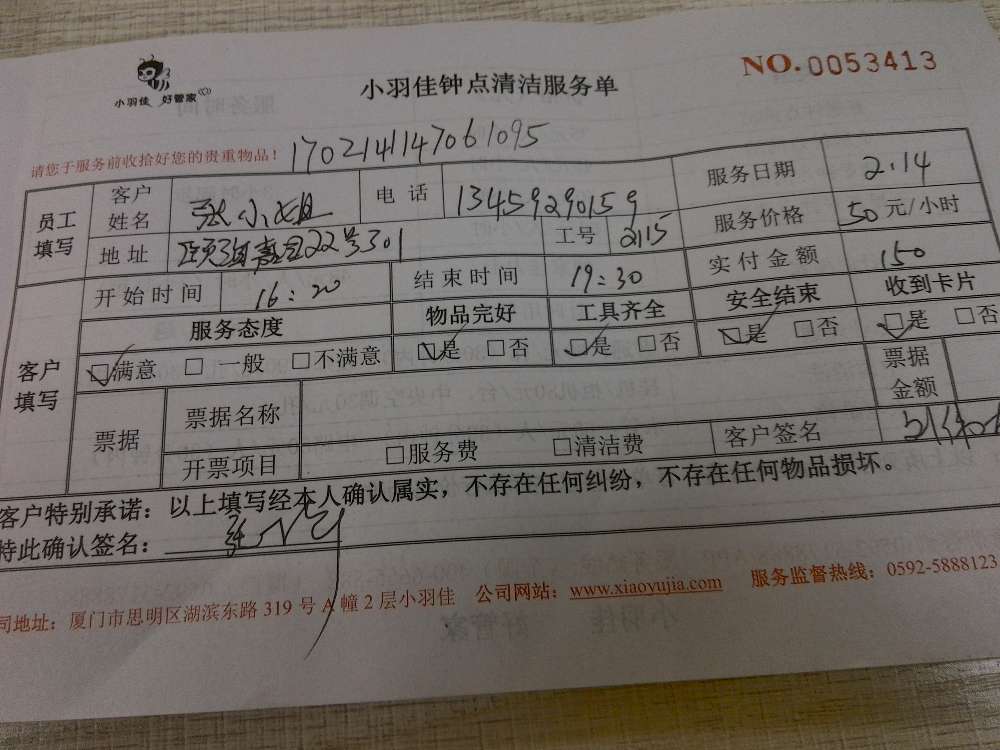 小羽佳 好管家
小羽佳钟点清洁服务单
NO.0053413
请您于服务前收拾好您的贵重物品! 170214147061095
员工填写 客户姓名 张小姐 电话 13459290159 服务日期 2.14
地址 22号301 工号 2115 服务价格 50元/小时
客户填写 开始时间 16:20 结束时间 19:30 实付金额 150
服务态度 物品完好 工具齐全 安全结束 收到卡片
☑满意 □一般 □不满意 ☑是 □否 ☑是 □否 ☑是 □否 ☑是 □否
票据 票据名称 票据金额
开票项目 □服务费 □清洁费 客户签名
客户特别承诺：以上填写经本人确认属实，不存在任何纠纷，不存在任何物品损坏。
特此确认签名：
司地址：厦门市思明区湖滨东路319号A幢2层小羽佳 公司网站：www.xiaoyujia.com 服务监督热线：0592-5888123